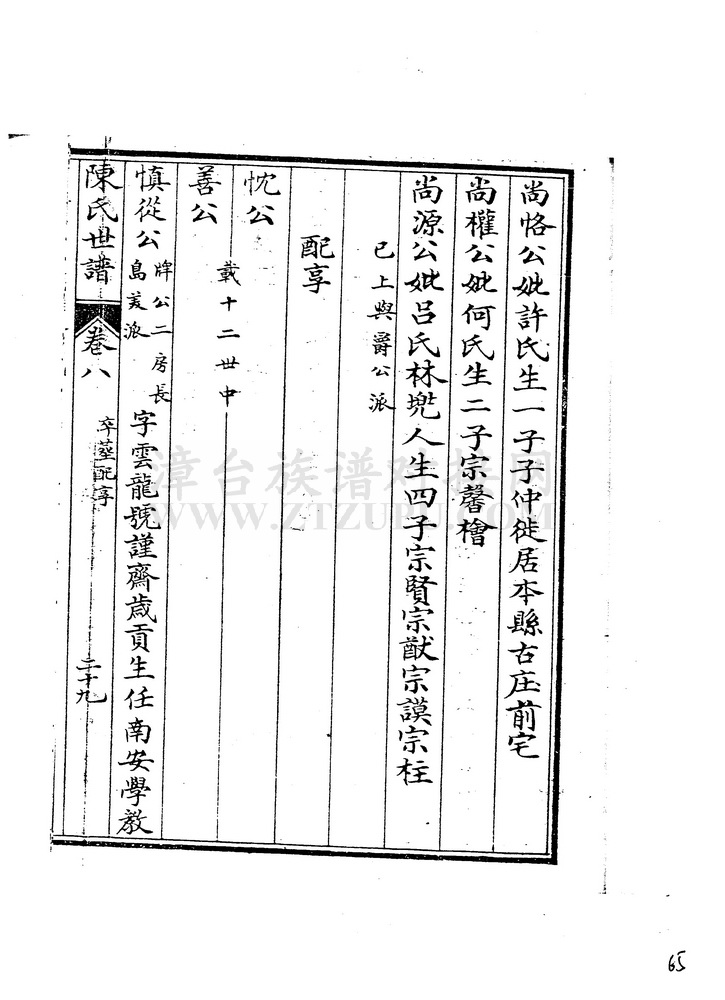 尚恪公妣許氏生一子子仲徙居本縣古庄前宅
尚權公妣何氏生二子宗馨檜
尚源公妣呂氏林兠人生四子宗賢宗猷宗謨宗柱
已上與爵公派
配享
忱公
善公
載十二世中
慎從公 牌公二房長
島美派
字雲龍號謹齋歲貢生任南安學教
陳氏世譜 卷八
卒塟配享
二十九
漳台族谱对接网
WWW.ZTZUPU.COM
65